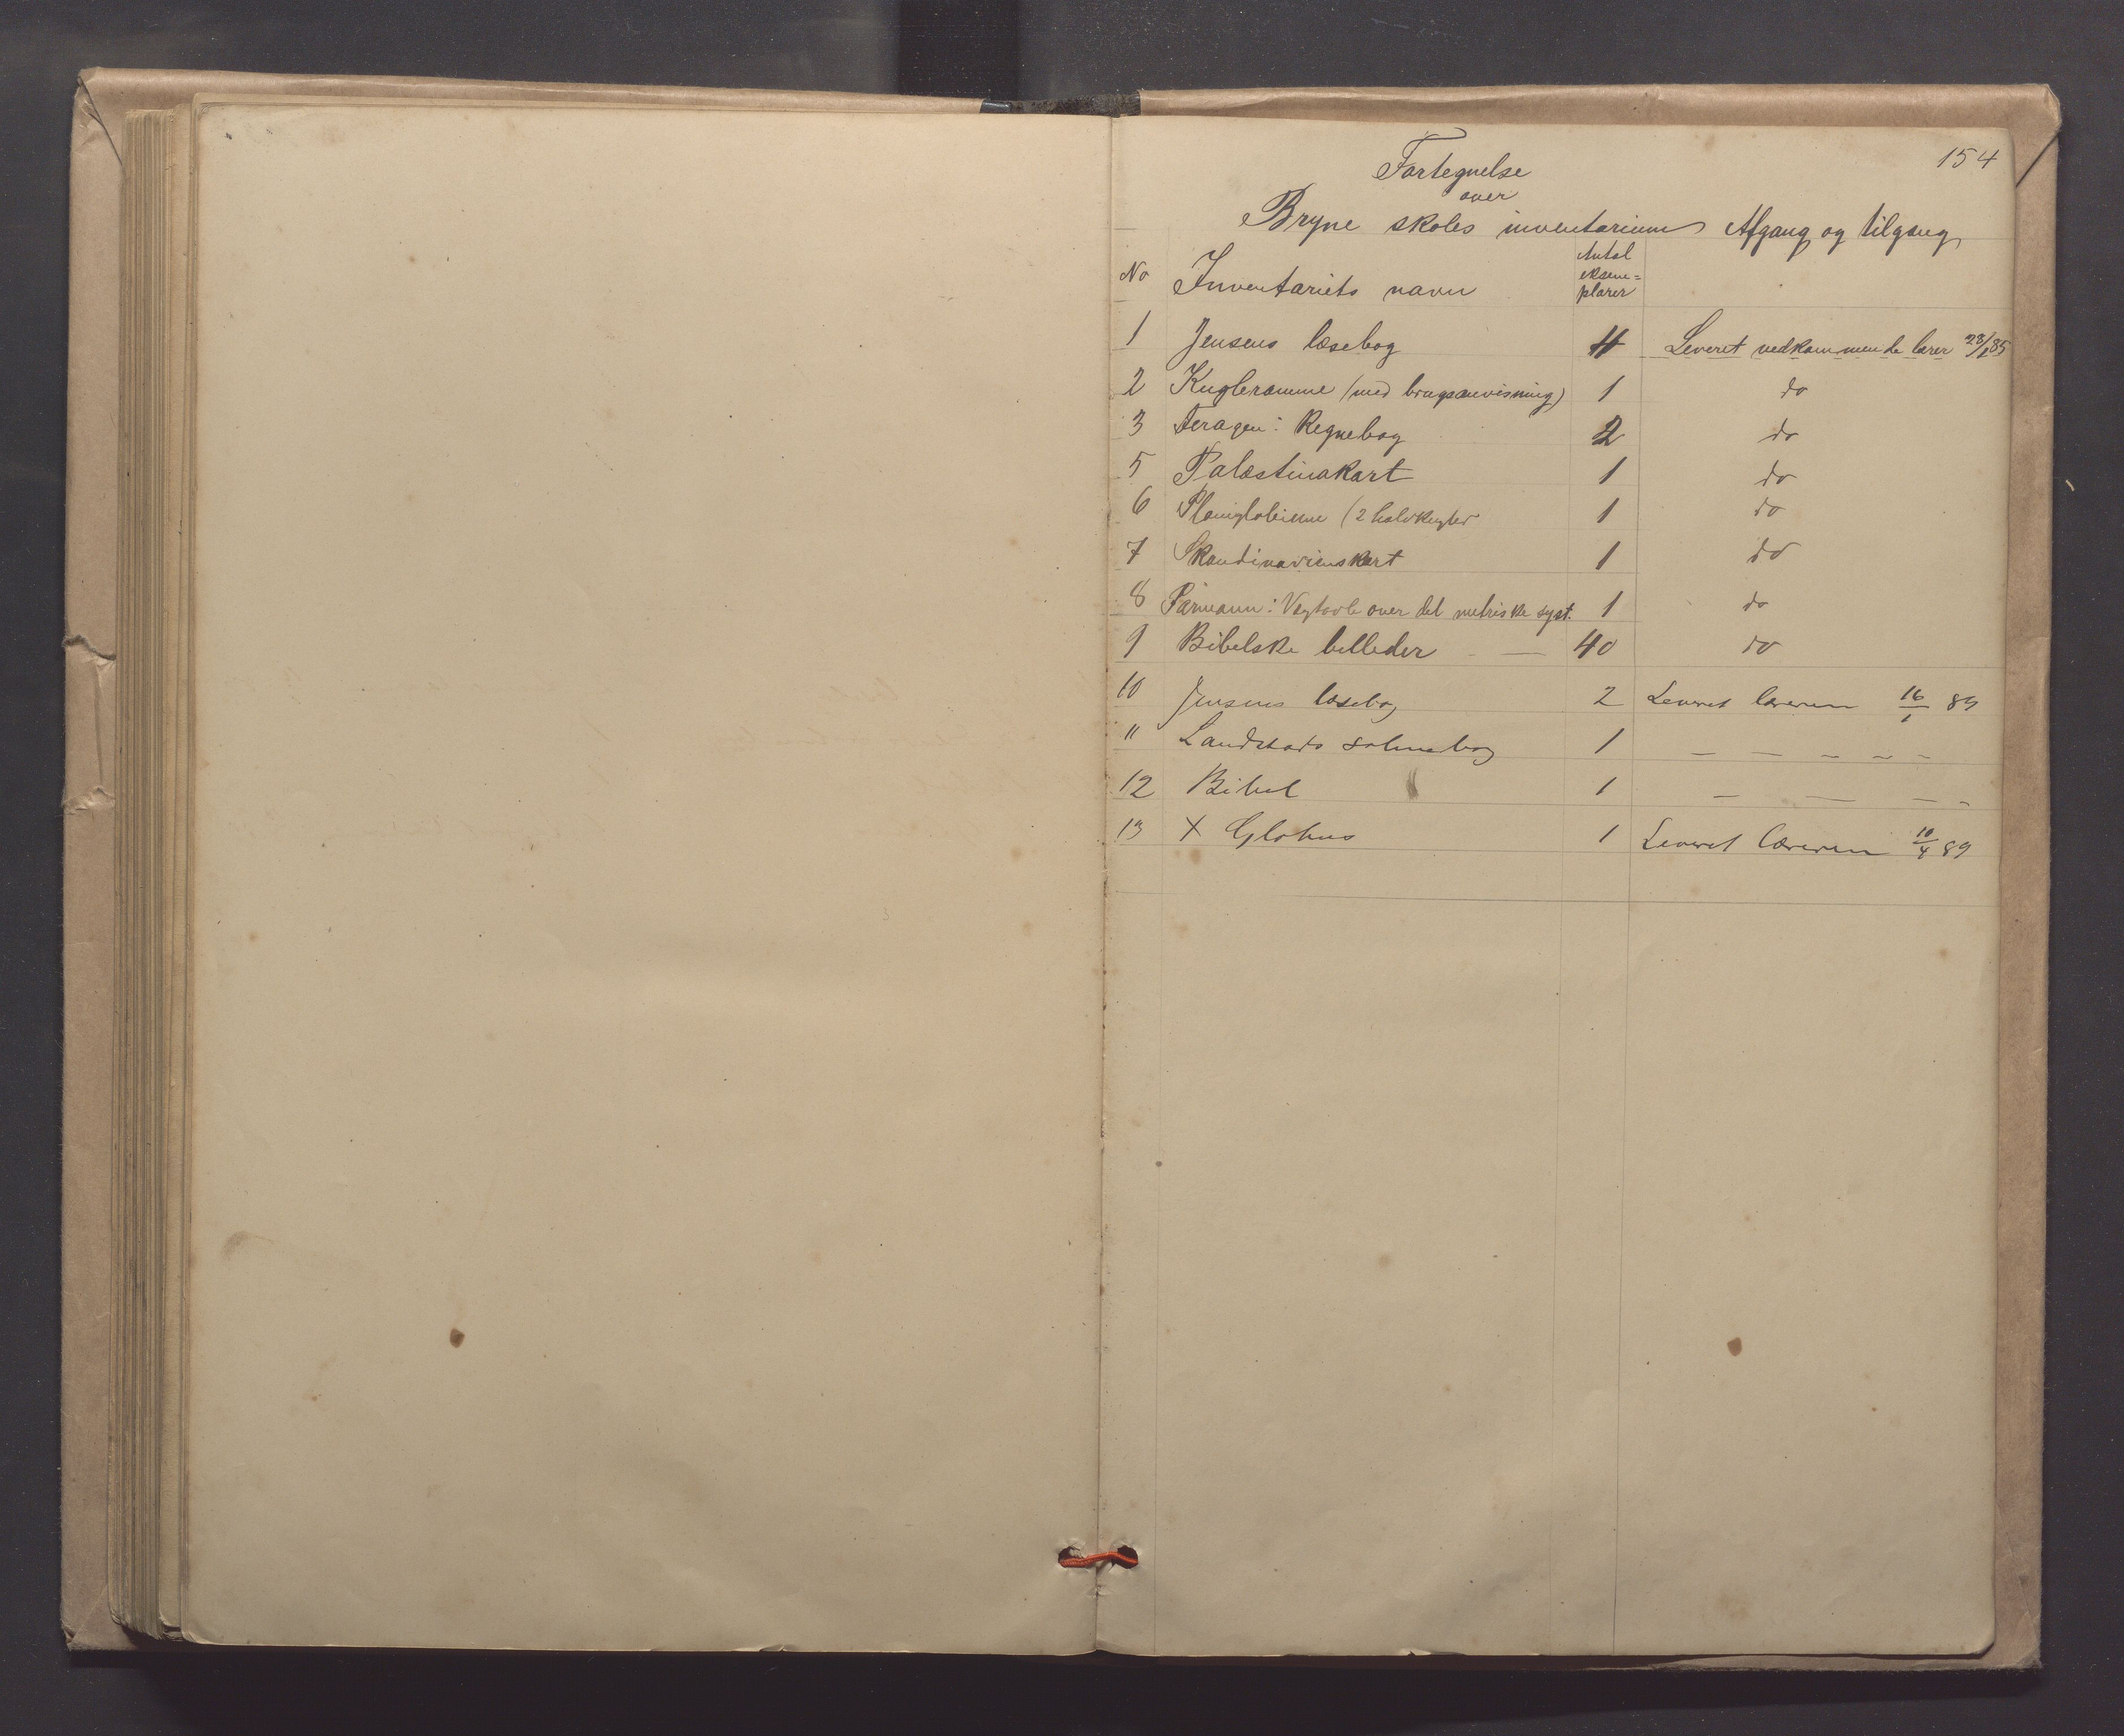 154
Fortegnelse
over
Bryne skoles inventarium Afgang og tilgang
No Inventariets navn Antal eksem=plarer
1 Jensens læsebog 4 Leveret vedkommende lærer 28/1 85
2 Kugleramme (med brugsanvisning) 1 do
3 Feragen: Regnebog 2 do
5 Palæstinakart 1 do
6 Planiglobierne (2 halvkugler 1 do
7 Skandinavienskart 1 do
8 : Vægtavle over det metriske syst. 1 do
9 Bibelske billeder — 40 do
10 Jensens læsebog 2 Leveret læreren 16/1 89
11 Landstads salmebog 1 — — — — —
12 Bibel 1 — — — —
13 X Globus 1 Leveret Læreren 10/4 89